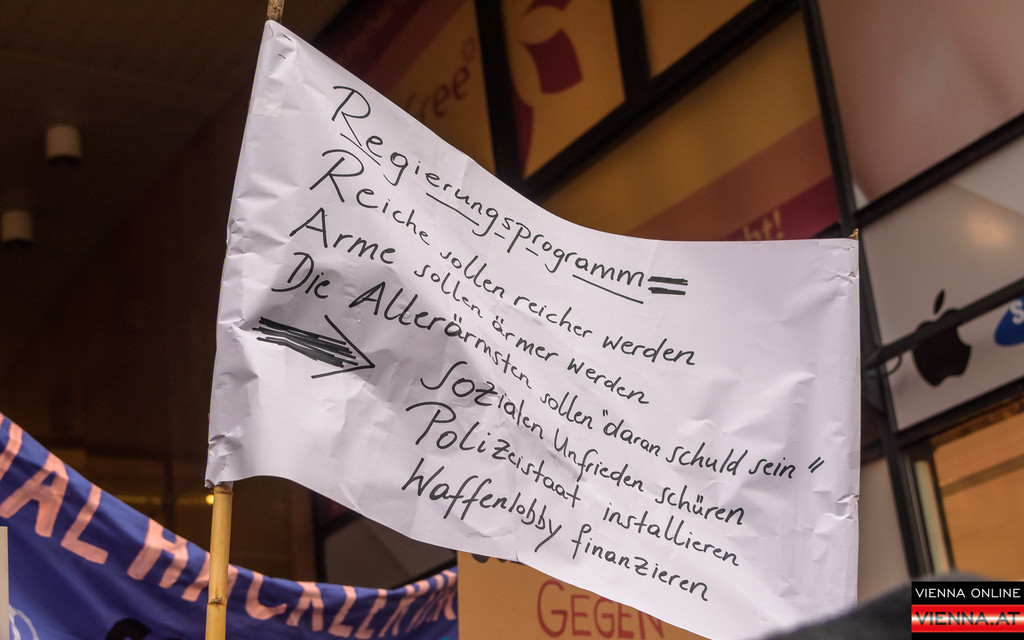 Regierungsprogramm =
Reiche sollen reicher werden
Arme sollen ärmer werden
Die Allerärmsten sollen "daran schuld sein"
Sozialen Unfrieden schüren
Polizeistaat installieren
Waffenlobby finanzieren
GEGEN
VIENNA ONLINE
VIENNA.AT